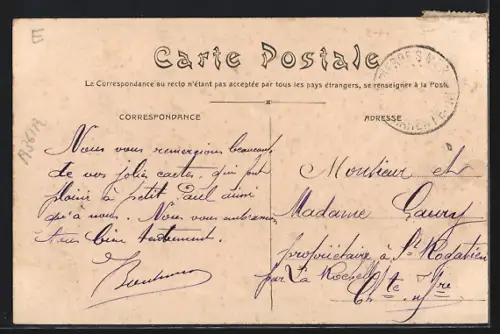 E
Carte Postale
La Correspondance au recto n'étant pas acceptée par tous les pays étrangers, se renseigner à la Poste.
CORRESPONDANCE
ADRESSE
Nous vous remercions beaucoup
de vos jolies cartes, qui font
plaisir à petit Paul ainsi
qu'à nous. Nous vous embrassons
tous bien tendrement.
Monsieur et
Madame Gaury
propriétaire à St Rogatien
par La Rochelle
Chte Infre